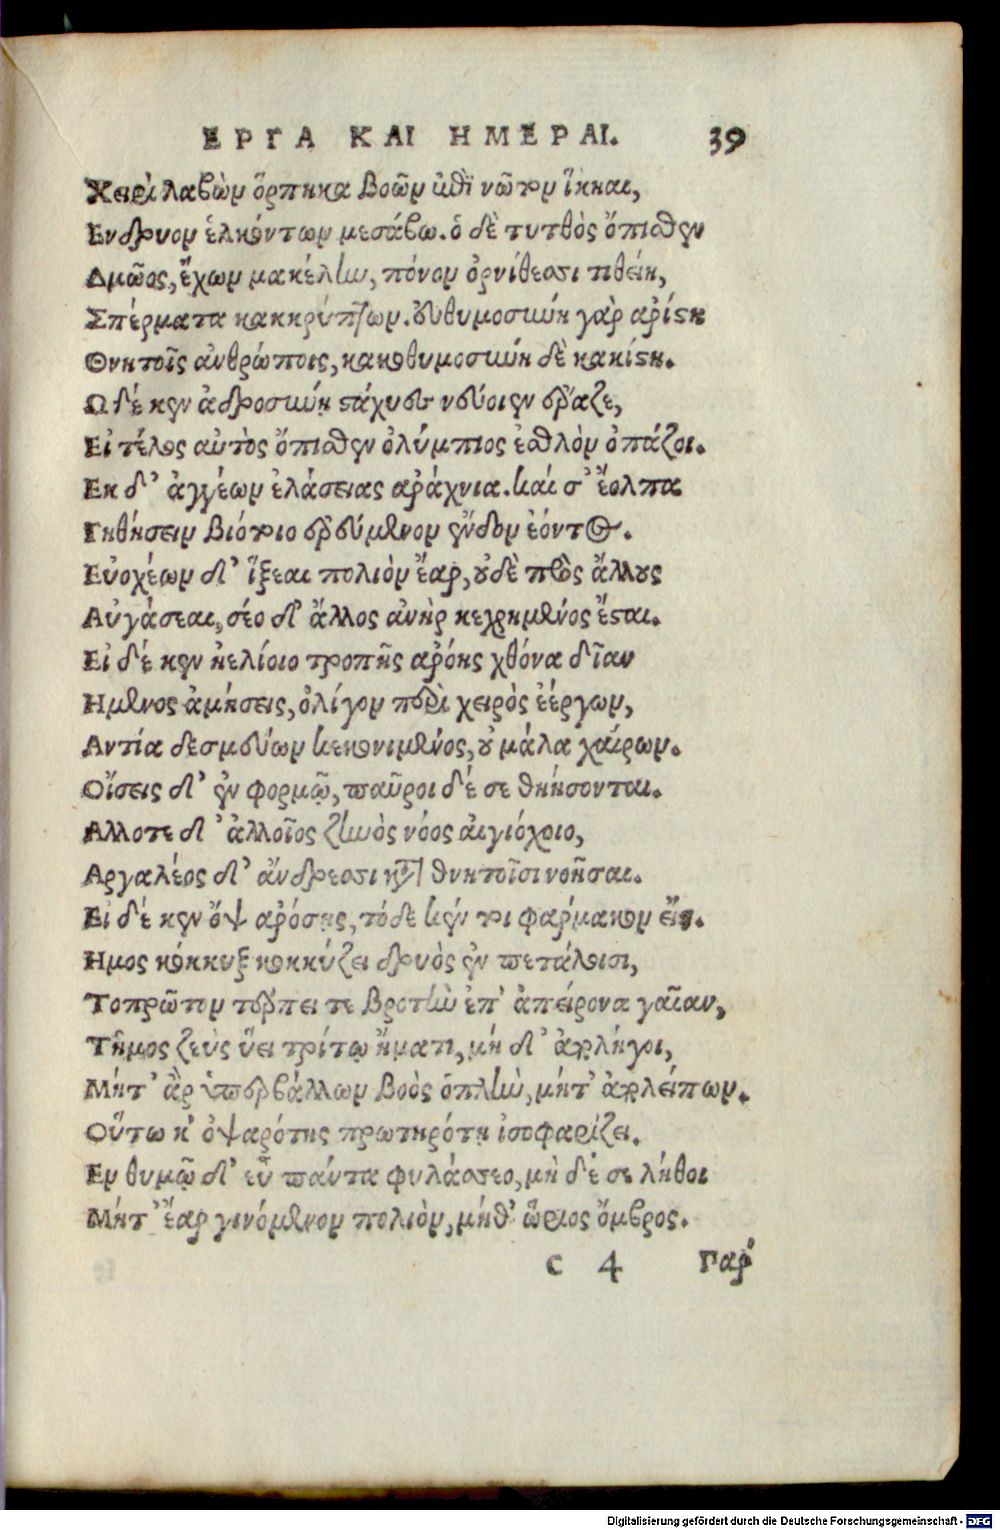 ΕΡΓΑ ΚΑΙ ΗΜΕΡΑΙ. 39
Χειρὶ λαβὼν ὅρπηκα βοῶν ἐπὶ νῶτον ἵκηαι,
Ενδρυον ἑλκόντων μεσάβω. ὁ δὲ τυτθὸς ὄπισθεν
Δμῶος, ἔχων μακέλην, πόνον ὀρνίθεσσι τιθείη,
Σπέρματα κακκρύπτων. εὐθυμοσύνη γὰρ ἀρίστη
Θνητοῖς ἀνθρώποις, κακοθυμοσύνη δὲ κακίστη.
Ωδέ κεν ἁδροσύνῃ στάχυες νεύοιεν ἔραζε,
Εἰ τέλος αὐτὸς ὄπισθεν ὀλύμπιος ἐσθλὸν ὀπάζοι.
Εκ δ' ἀγγέων ἐλάσειας ἀράχνια. καί σ' ἔολπα
Γηθήσειν βιότοιο ἐρεύμενον ἔνδον ἐόντος.
Εὐοχέων δ' ἵξεαι πολιὸν ἔαρ, οὐδὲ πρὸς ἄλλους
Αὐγάσεαι, σέο δ' ἄλλος ἀνὴρ κεχρημένος ἔσται.
Εἰ δέ κεν ἠελίοιο τροπῇς ἀρόῃς χθόνα δῖαν
Ημενος ἀμήσεις, ὀλίγον περὶ χειρὸς ἐέργων,
Αντία δεσμεύων κεκονιμένος, οὐ μάλα χαίρων.
Οἴσεις δ' ἐν φορμῷ, παῦροι δέ σε θηήσονται.
Αλλοτε δ' ἀλλοῖος ζηνὸς νόος αἰγιόχοιο,
Αργαλέος δ' ἄνδρεσσι κατ θνητοῖσι νοῆσαι.
Εἰ δέ κεν ὄψ ἀρόσῃς, τόδε κέν τοι φάρμακον εἴη.
Ημος κόκκυξ κοκκύζει δρυὸς ἐν πετάλοισι,
Τοπρῶτον τέρπει τε βροτοὺς ἐπ' ἀπείρονα γαῖαν,
Τῆμος ζεὺς ὕει τρίτῳ ἤματι, μή δ' ἀπολήγοι,
Μήτ' ἂρ ὑπερβάλλων βοὸς ὁπλὴν, μήτ' ἀπολείπων.
Οὕτω κ' ὀψαρότης πρωτηρότῃ ἰσοφαρίζει.
Εν θυμῷ δ' εὖ πάντα φυλάσσεο, μὴ δέ σε λήθοι
Μήτ' ἔαρ γινόμενον πολιὸν, μήθ' ὥριος ὄμβρος.
c 4 Γαρ
Digitalisierung gefördert durch die Deutsche Forschungsgemeinschaft - DFG